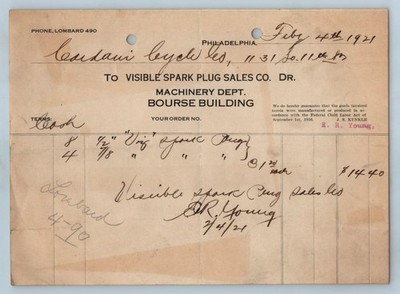 PHONE, LOMBARD 490
PHILADELPHIA, Feby 4th 1921
Cordani Cycle Co, 1131 So. 11th St
TO VISIBLE SPARK PLUG SALES CO. DR.
MACHINERY DEPT.
BOURSE BUILDING
We do hereby guarantee that the goods herein
invoiced were manufactured or produced in ac-
cordance with the Federal Child Labor Act of
September 1st, 1918. J. S. KUNKLE
E. R. Young.
TERMS Cash YOUR ORDER NO.
8 1/2" "Vis" Spark Plug
4 7/8 " " " @ 1 20 each $14.40
Visible Spark Plug Sales Co
E.R. Young
2/4/21
Lombard
4-90